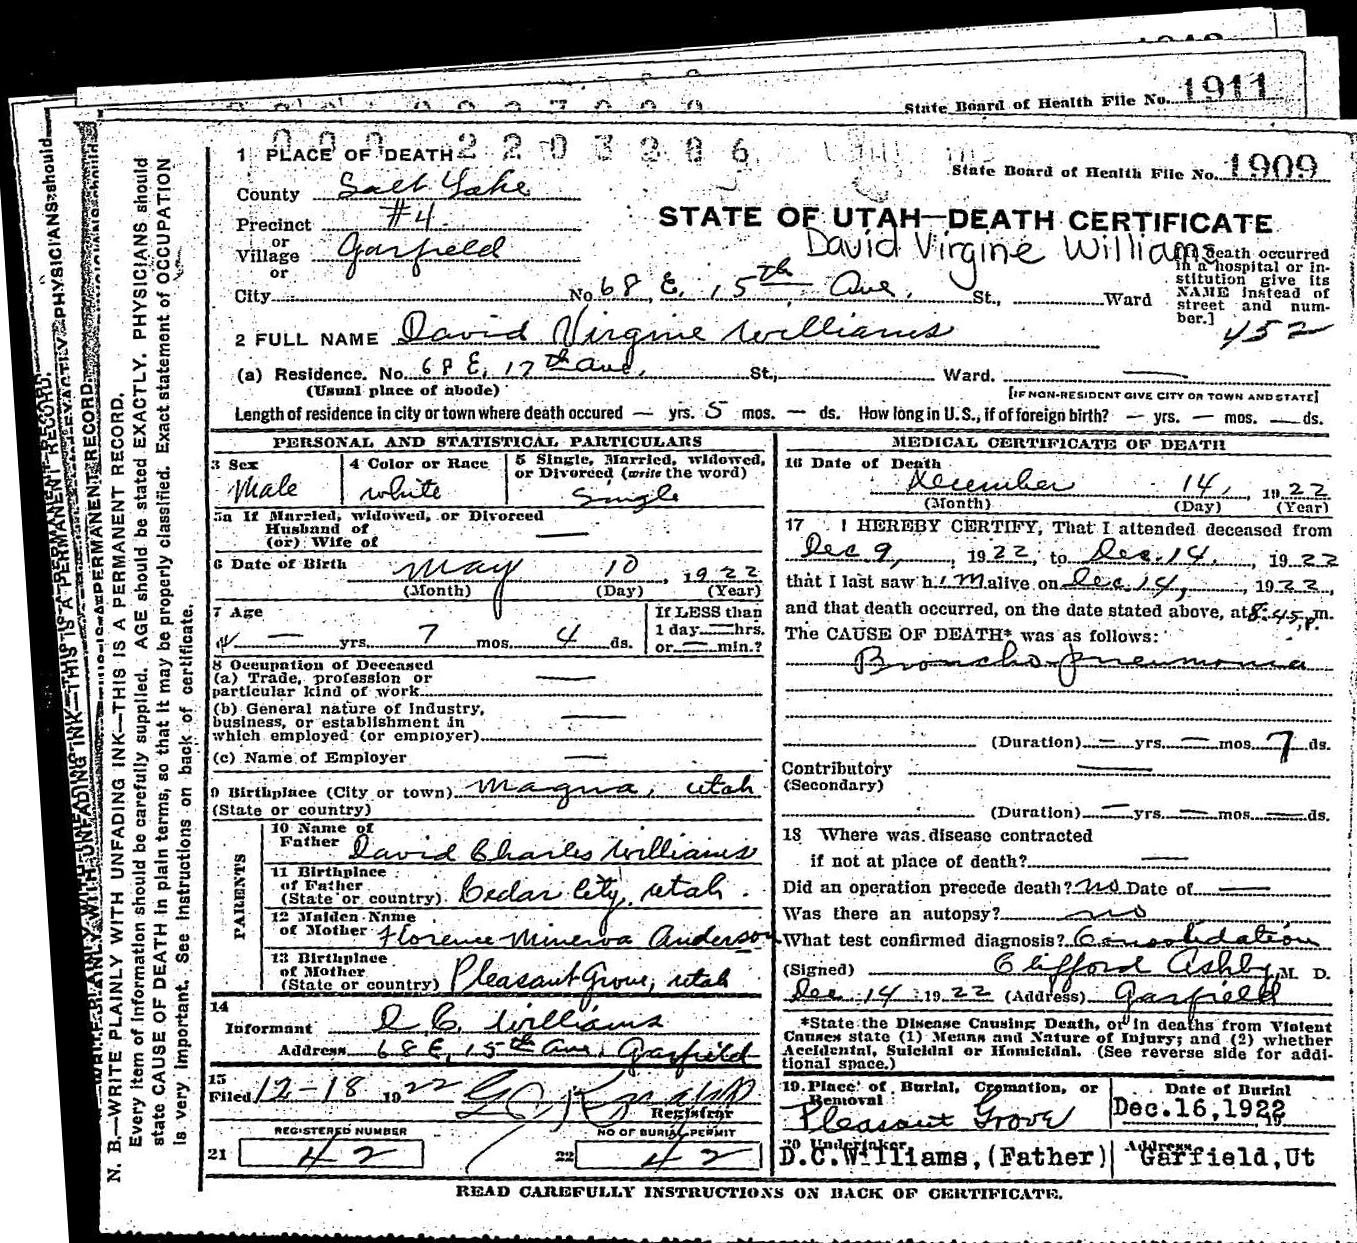 State Board of Health File No. 1911
0 0 0 2 2 0 3 2 0 6
State Board of Health File No. 1909
1 PLACE OF DEATH
County Salt Lake
Precinct #4
or
Village Garfield
or
STATE OF UTAH—DEATH CERTIFICATE
David Virgine Williams
death occurred in a hospital or institution give its NAME instead of street and number.]
City No 68 E. 15th Ave. St., Ward
452
2 FULL NAME David Virgine Williams
(a) Residence. No. 68 E. 17th Ave. St., Ward. —
(Usual place of abode) [IF NON-RESIDENT GIVE CITY OR TOWN AND STATE]
Length of residence in city or town where death occured — yrs. 5 mos. — ds. How long in U.S., if of foreign birth? — yrs. — mos. — ds.
PERSONAL AND STATISTICAL PARTICULARS
3 Sex
Male
4 Color or Race
white
5 Single, Married, widowed, or Divorced (write the word)
Single
5a If Married, widowed, or Divorced
Husband of
(or) Wife of —
6 Date of Birth May 10, 1922
(Month) (Day) (Year)
7 Age
— yrs. 7 mos. 4 ds.
If LESS than
1 day — hrs.
or — min.?
8 Occupation of Deceased
(a) Trade, profession or
particular kind of work —
(b) General nature of Industry,
business, or establishment in
which employed (or employer) —
(c) Name of Employer —
9 Birthplace (City or town) Magna, Utah
(State or country)
PARENTS
10 Name of
Father David Charles Williams
11 Birthplace
of Father
(State or country) Cedar City, Utah.
12 Maiden Name
of Mother Florence Minerva Anderson
13 Birthplace
of Mother
(State or country) Pleasant Grove, Utah
14
Informant D. C. Williams
Address 68 E. 15th Ave. Garfield
15
Filed 12-18 1922
Registrar
REGISTERED NUMBER
21 42
NO OF BURIAL PERMIT
22 42
MEDICAL CERTIFICATE OF DEATH
16 Date of Death
December 14, 1922
(Month) (Day) (Year)
17 I HEREBY CERTIFY, That I attended deceased from
Dec 9, 1922, to Dec. 14, 1922
that I last saw him alive on Dec. 14, 1922,
and that death occurred, on the date stated above, at 8:45 p. m.
The CAUSE OF DEATH* was as follows:
Broncho-pneumonia
(Duration) — yrs. — mos. 7 ds.
Contributory —
(Secondary)
(Duration) — yrs. — mos. — ds.
18 Where was disease contracted
if not at place of death? —
Did an operation precede death? no Date of —
Was there an autopsy? no
What test confirmed diagnosis? Consolidation
(Signed) Clifford Ashby, M. D.
Dec 14 1922 (Address) Garfield
*State the Disease Causing Death, or in deaths from Violent
Causes state (1) Means and Nature of Injury; and (2) whether
Accidental, Suicidal or Homicidal. (See reverse side for addi-
tional space.)
19 Place of Burial, Cremation, or
Removal
Pleasant Grove
Date of Burial
Dec.16,1922
20 Undertaker
D.C.Williams,(Father)
Address
Garfield,Ut
READ CAREFULLY INSTRUCTIONS ON BACK OF CERTIFICATE.
N. B.—WRITE PLAINLY WITH UNFADING INK—THIS IS A PERMANENT RECORD.
Every item of information should be carefully supplied. AGE should be stated EXACTLY. PHYSICIANS should
state CAUSE OF DEATH in plain terms, so that it may be properly classified. Exact statement of OCCUPATION
is very important. See instructions on back of certificate.